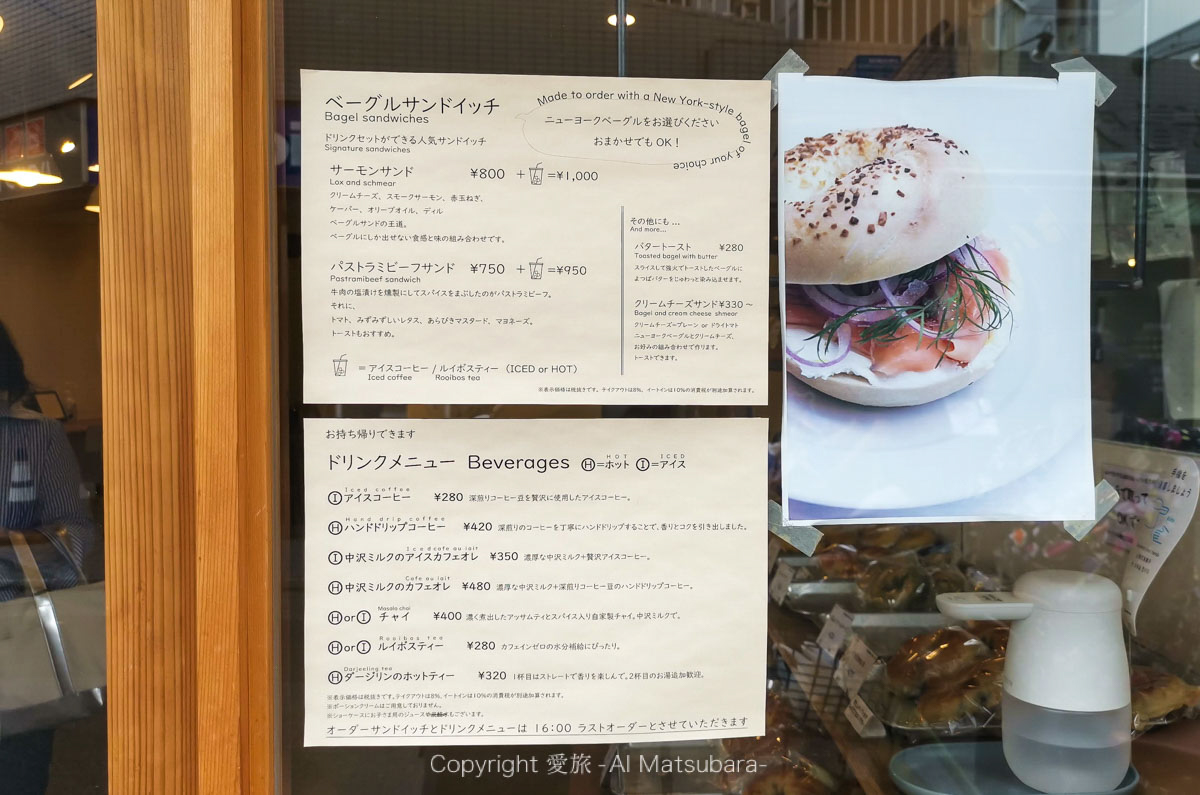 ベーグルサンドイッチ
Bagel sandwiches
Made to order with a New York-style bagel of your choice
ニューヨークベーグルをお選びください
おまかせでも OK!
ドリンクセットができる人気サンドイッチ
Signature sandwiches
サーモンサンド ¥800 + =¥1,000
Lox and schmear
クリームチーズ、スモークサーモン、赤玉ねぎ、
ケーパー、オリーブオイル、ディル
ベーグルサンドの王道。
ベーグルにしか出せない食感と味の組み合わせです。
パストラミビーフサンド ¥750 + =¥950
Pastramibeef sandwich
牛肉の塩漬けを燻製にしてスパイスをまぶしたのがパストラミビーフ。
それに、
トマト、みずみずしいレタス、あらびきマスタード、マヨネーズ。
トーストもおすすめ。
= アイスコーヒー / ルイボスティー (ICED or HOT)
Iced coffee Rooibos tea
その他にも ...
And more...
バタートースト ¥280
Toasted bagel with butter
スライスして強火でトーストしたベーグルに
よつばバターをじゅわっと染み込ませます。
クリームチーズサンド¥330〜
Bagel and cream cheese shmear
クリームチーズ=プレーン or ドライトマト
ニューヨークベーグルとクリームチーズ、
お好みの組み合わせで作ります。
トーストできます。
※表示価格は税抜きです。テイクアウトは8%、イートインは10%の消費税が別途加算されます。
お持ち帰りできます
ドリンクメニュー Beverages Ⓗ=ホット Ⓘ=アイス
HOT ICED
Iced coffee
Ⓘアイスコーヒー ¥280 深煎りコーヒー豆を贅沢に使用したアイスコーヒー。
Hand drip coffee
Ⓗハンドドリップコーヒー ¥420 深煎りのコーヒーを丁寧にハンドドリップすることで、香りとコクを引き出しました。
Iced cafe au lait
Ⓘ中沢ミルクのアイスカフェオレ ¥350 濃厚な中沢ミルク+贅沢アイスコーヒー。
Cafe au lait
Ⓗ中沢ミルクのカフェオレ ¥480 濃厚な中沢ミルク+深煎りコーヒー豆のハンドドリップコーヒー。
Masala chai
ⒽorⒾ チャイ ¥400 濃く煮出したアッサムティとスパイス入り自家製チャイ。中沢ミルクで。
Rooibos tea
ⒽorⒾ ルイボスティー ¥280 カフェインゼロの水分補給にぴったり。
Darjeeling tea
Ⓗダージリンのホットティー ¥320 1杯目はストレートで香りを楽しんで。2杯目のお湯追加歓迎。
※表示価格は税抜きです。テイクアウトは8%、イートインは10%の消費税が別途加算されます。
※ポーションクリームはご用意しておりません。
※ショーケースにお子さま用のジュースもございます。
オーダーサンドイッチとドリンクメニューは 16:00 ラストオーダーとさせていただきます
Copyright 愛旅 -AI Matsubara-